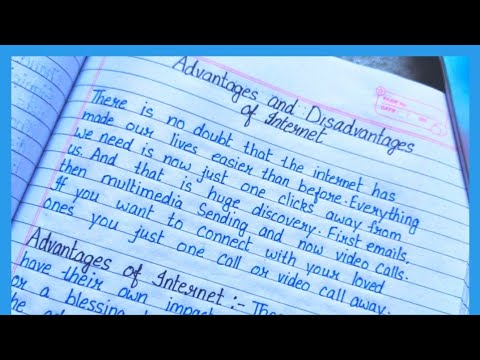 Advantages and Disadvantages
of Internet
There is no doubt that the internet has
made our lives easier than before. Everything
we need is now just one clicks away from
us. And that is huge discovery. First emails,
then multimedia Sending and now video calls.
If you want to connect with your loved
ones you just one call or video call away.
Advantages of Internet :-
have their own impac
or a blessing
the ad
PAGE No.
DATE